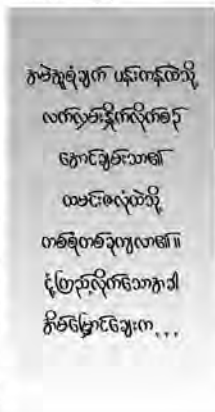 အမဲသူရံချက် ပန်းကန်ထဲသို့
လက်လှမ်းနှိုက်လိုက်စဉ်
ခေါင်ချမ်းသာ၏
ထမင်းဇလုံထဲသို့
တစ်စုံတစ်ခုကျလာ၏။
ငုံ့ကြည့်လိုက်သောအခါ
အိမ်မြှောင်ချေးက...